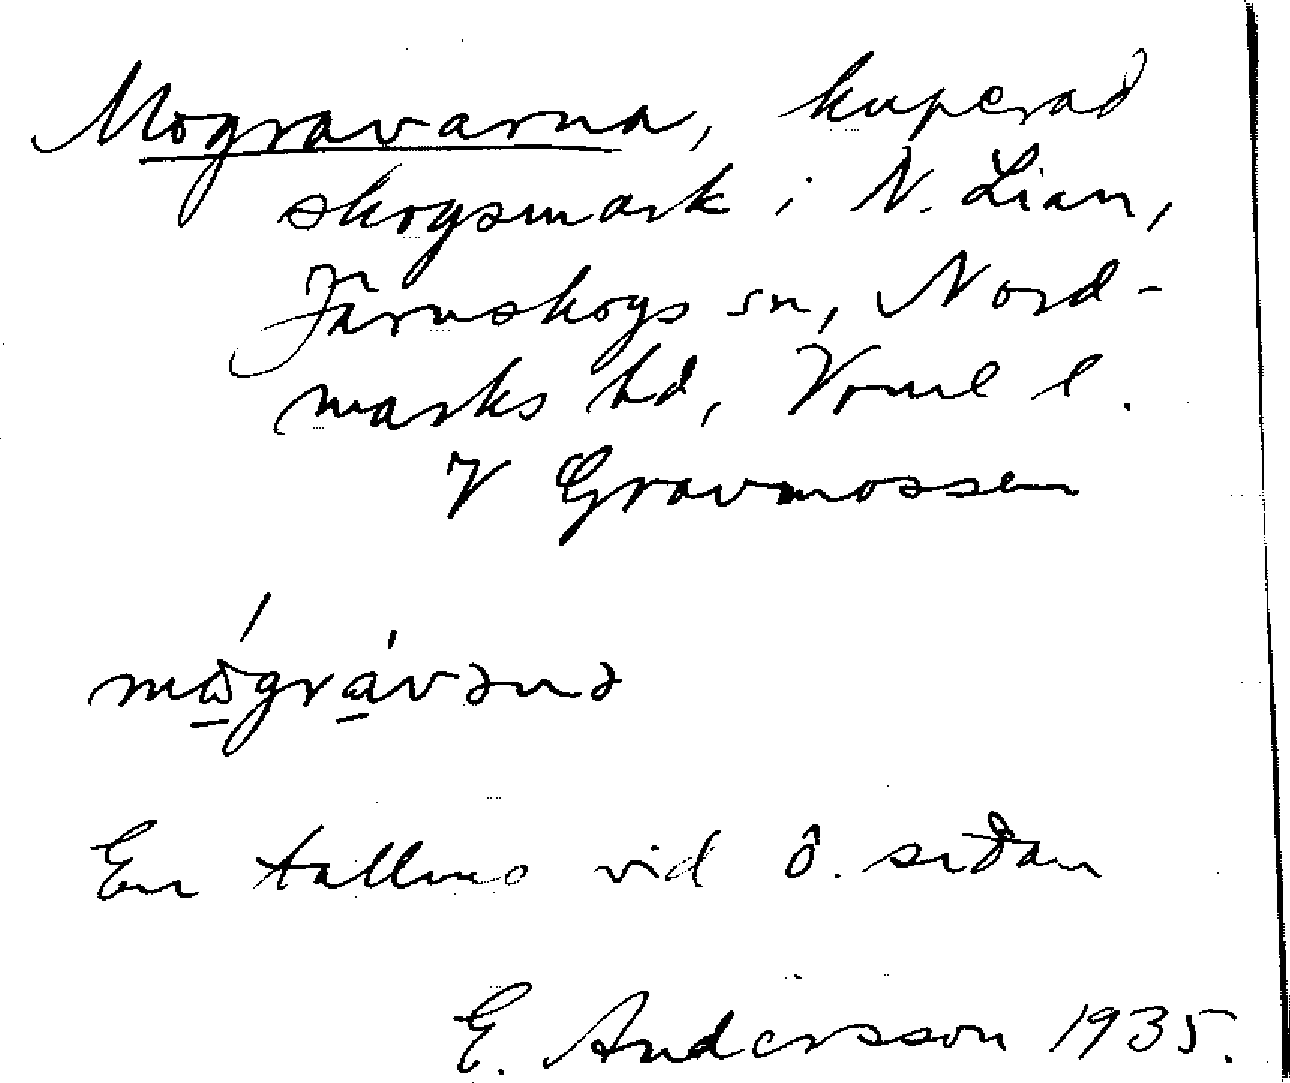 Mogravarna, kuperad
skogsmark i N. Lian,
Järnskogs sn, Nord-
marks hd, Vrml l.
V Gravmossen
mɷ́grávənə
En tallmo vid ö. sidan
E. Andersson 1935.